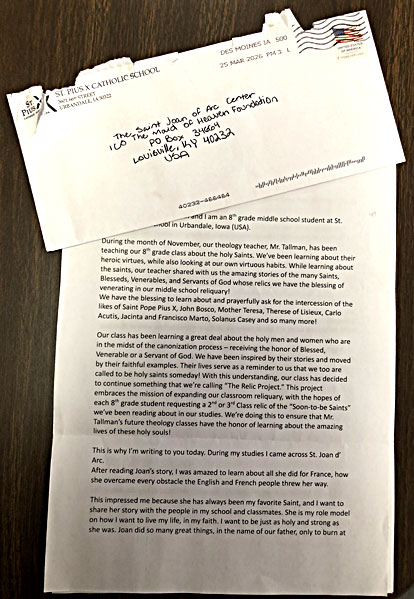 ST. PIUS X CATHOLIC SCHOOL
3601 66th STREET
URBANDALE, IA 50322
ST
PIUS X
DES MOINES IA 500
25 MAR 2026 PM 3 L
UNITED STATES
OF AMERICA
FOREVER USA
The Saint Joan of Arc Center
The Maid of Heaven Foundation
PO Box 34604
Louisville, KY 40232
USA
40232-466464
and I am an 8th grade middle school student at St.
ool in Urbandale, Iowa (USA).
During the month of November, our theology teacher, Mr. Tallman, has been
teaching our 8th grade class about the holy Saints. We've been learning about their
heroic virtues, while also looking at our own virtuous habits. While learning about
the saints, our teacher shared with us the amazing stories of the many Saints,
Blesseds, Venerables, and Servants of God whose relics we have the blessing of
venerating in our middle school reliquary!
We have the blessing to learn about and prayerfully ask for the intercession of the
likes of Saint Pope Pius X, John Bosco, Mother Teresa, Therese of Lisieux, Carlo
Acutis, Jacinta and Francisco Marto, Solanus Casey and so many more!
Our class has been learning a great deal about the holy men and women who are
in the midst of the canonization process – receiving the honor of Blessed,
Venerable or a Servant of God. We have been inspired by their stories and moved
by their faithful examples. Their lives serve as a reminder to us that we too are
called to be holy saints someday! With this understanding, our class has decided
to continue something that we're calling "The Relic Project." This project
embraces the mission of expanding our classroom reliquary, with the hopes of
each 8th grade student requesting a 2nd or 3rd Class relic of the "Soon-to-be Saints"
we've been reading about in our studies. We're doing this to ensure that Mr.
Tallman's future theology classes have the honor of learning about the amazing
lives of these holy souls!
This is why I'm writing to you today. During my studies I came across St. Joan d'
Arc.
After reading Joan's story, I was amazed to learn about all she did for France, how
she overcame every obstacle the English and French people threw her way.
This impressed me because she has always been my favorite Saint, and I want to
share her story with the people in my school and classmates. She is my role model
on how I want to live my life, in my faith. I want to be just as holy and strong as
she was. Joan did so many great things, in the name of our father, only to burn at